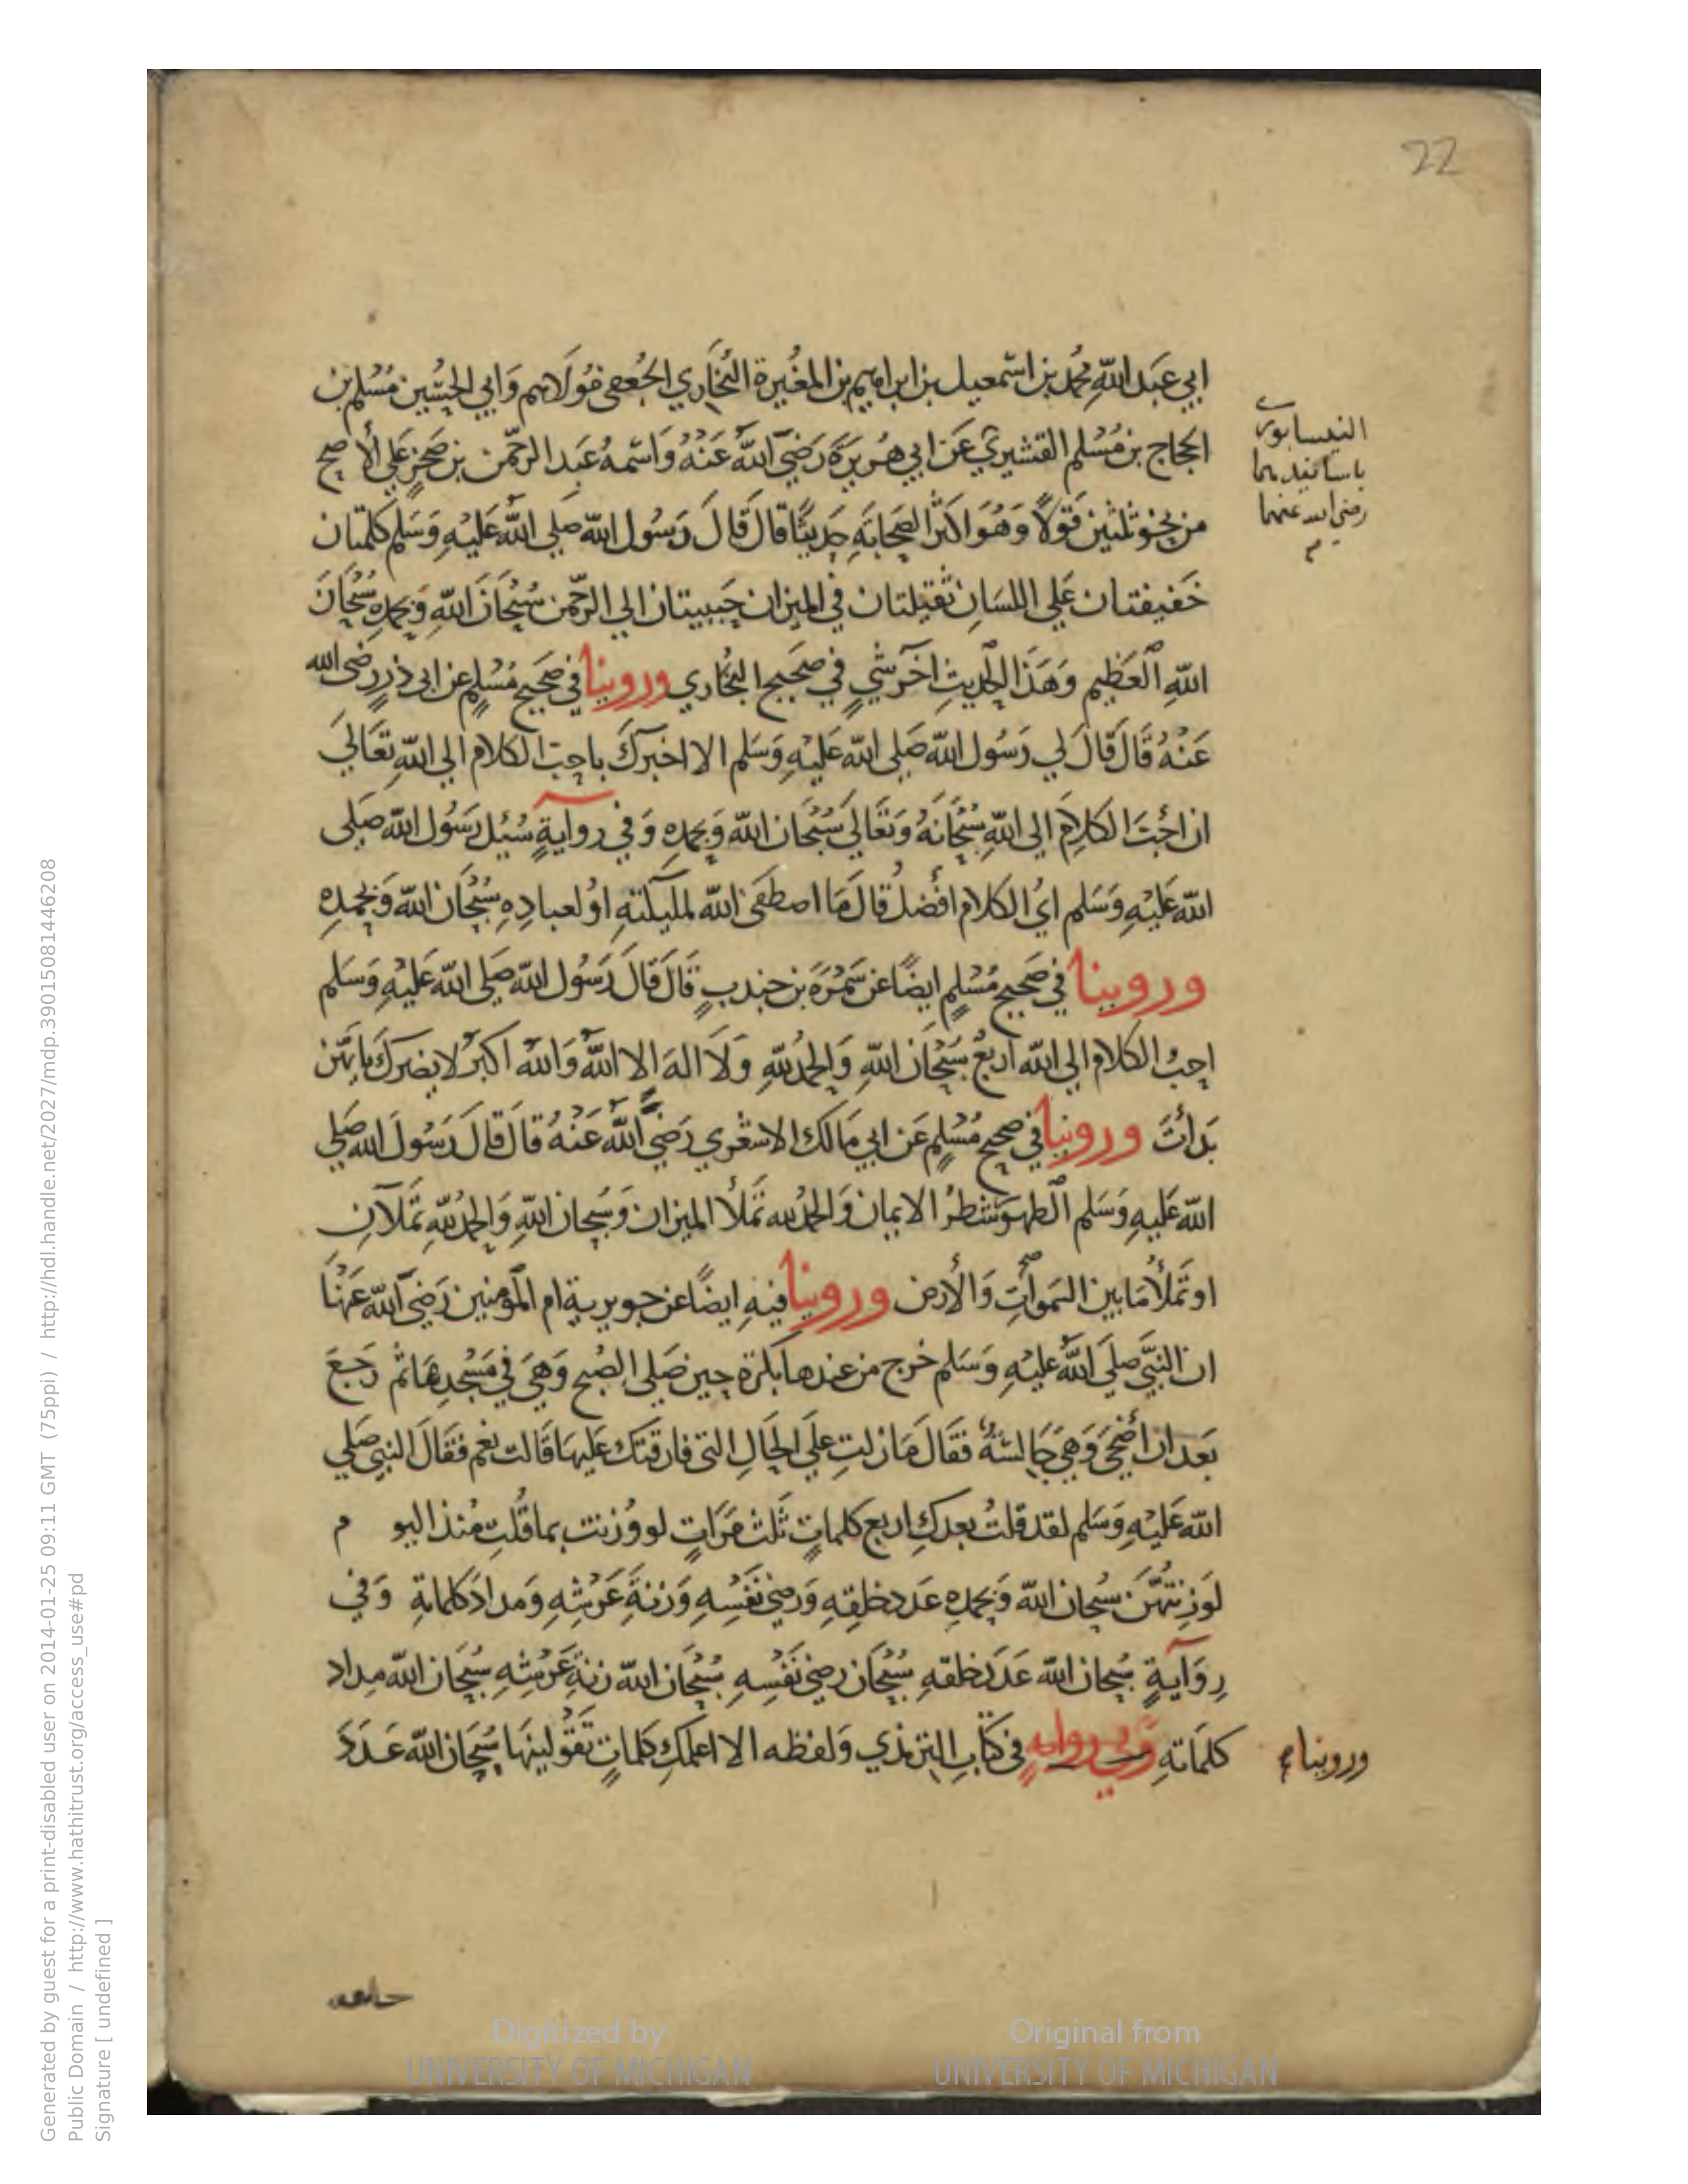 22
ابي عَبد اللّهِ مُحمّد بن اسمعيل بن ابراهيم بن المغيرة البُخَاري الجُعفى مَولَاهم وَابي الحسُين مُسْلم بن
الحجاج بن مُسْلم القشيري عَن ابي هُريرَة رَضيَ اللّهُ عَنْهُ وَاسْمهُ عَبد الرحّمن بن صَخرٍ علي الأصح
من نحو ثلثين قَولًا وَهُوَ اكثر الصحَابَةِ حَديثًا قال قَالَ رَسُول اللّه صلى اللّه عَليْهِ وَسَلم كلمتان
خَفيفتان عَلي اللسَانِ ثقيلتان في الميزان حَبيبتان الي الرحّمن سُبْحَانَ اللّهِ وَبحمدِهِ سُبْحَانَ
اللّهِ العَظيم وَهَذَا الحديث اخَر شيٍ في صَحيح البُخاري وروينا في صَحيح مُسْلمٍ عن ابى ذررٍضى الله
عَنْهُ قَالَ قَالَ لي رَسُول اللّه صَلى اللّه عَليْهِ وَسَلم الا اخبرك باحب الكلام الي اللّهِ تعَالَي
ان احَبَّ الكلامِ الي اللّهِ سُبْحَانَهُ وَتعَالَي سُبْحَان اللّه وَبحمدِهِ وَفي روايةٍ سُئِل رَسُول اللّه صَلى
اللّه عَليْهِ وَسَلم ايُ الكلام افضلُ قالَ مَا اصطَفَى اللّه لمليكتهِ اوْ لعبادِهِ سُبْحَان اللّه وَبحمدِهِ
وروينا في صَحيح مُسْلمٍ ايضًا عن سَمُرَة بن جندبٍ قَالَ قَالَ رَسُول اللّه صَلى اللّه عَليْهِ وَسَلم
احبُ الكلام الي اللّه اربعُ سُبْحَان اللّهِ وَالحمدُ للّهِ وَلَا الهَ الا اللّهُ وَاللّهُ اكبَرُ لا يضرك بايّهن
بَدأتَ وروينا في صحيح مُسْلمٍ عَن ابي مَالك الاشعَري رَضيَ اللّهُ عَنْهُ قالَ قالَ رَسُولَ الله صلي
اللّه عَليهِ وَسَلم الطهور شطرُ الايمان وَالحمدُ لله تَملأُ الميزان وَسُبحان اللّهِ وَالحمدُ للّهِ تَملآنِ
او تَملأُ مَا بين السَموَاتِ وَالأرض وروينا فيهِ ايضًا عن جويرية ام المؤمنين رَضيَ اللّه عَنْهَا
ان النبيَّ صلي اللّهُ عليْهِ وَسَلم خرج من عندها بكرة حين صَلي الصُبح وَهيَ في مَسْجدِهَا ثم رَجَعَ
بَعد ان اضْحَي وَهيَ جَالسَةٌ فقَالَ مَا زلتِ علَي الحَالِ التى فارقتك عَليهَا قَالت نعَم فقَالَ النبي صَلي
اللّه عَليْهِ وَسَلم لقد قلتُ بعدكِ اربع كلماتٍ ثَلث مَرَاتٍ لو وُزنت بما قُلتِ مُنذ اليو م
لَوزنتهُنَ سُبحان اللّه وَبحمدِهِ عَدد خلقِهِ وَرضيَ نَفْسِهِ وَزنةَ عَرْشِهِ وَمداد كلماتهِ وَفي
رِوَايةٍ سُبحان اللّه عَدَدَ خلقهِ سُبْحَان رضي نَفْسِهِ سُبْحَان اللّه زنةِ عَرْشِهِ سُبْحَان اللّه مداد
كلمَاتهِ وَفي روايةٍ في كتَابِ الترمذي وَلفظه الا اعلمكِ كلماتٍ تَقُوليْنهَا سُبحَان اللّه عَدَدَ
النيسابورى
باسانيدهما
رضي الله عنهما
وروينا
Digitized by
UNIVERSITY OF MICHIGAN
Original from
UNIVERSITY OF MICHIGAN
Generated by guest for a print-disabled user on 2014-01-25 09:11 GMT (75ppi) / http://hdl.handle.net/2027/mdp.39015081446208
Public Domain / http://www.hathitrust.org/access_use#pd
Signature [ undefined ]